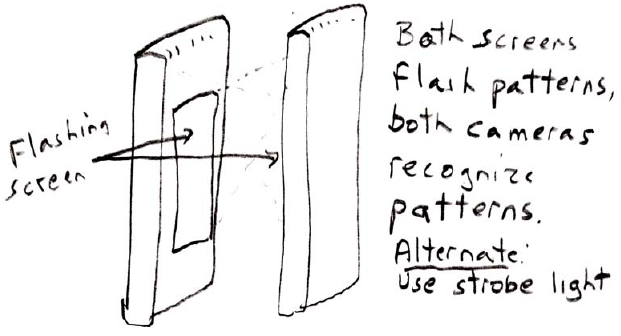 Flashing
screen
Both screens
flash patterns,
both cameras
recognize
patterns.
Alternate:
Use strobe light